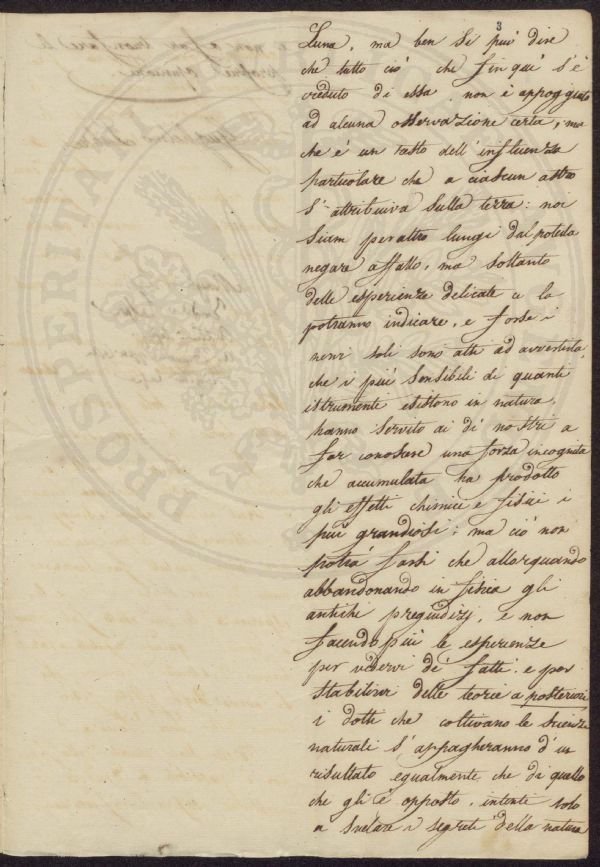 3
Luna, ma ben si può dire
che tutto ciò che fin qui s'è
creduto di essa non è appoggiato
ad alcuna osservazione certa, ma
che è un resto dell'influenza
particolare che a ciascun astro
s'attribuiva sulla terra: noi
siam per altro lungi dal poterla
negare affatto, ma soltanto
delle esperienze delicate ce la
potranno indicare, e forse i
nervi soli sono atti ad avvertirla,
che i più sensibili di quanti
istrumenti esistono in natura,
hanno servito ai dì nostri a
far conoscere una forza incognita
che accumulata ha prodotto
gli effetti chimici e fisici i
più grandiosi; ma ciò non
potrà farsi che allorquando
abbandonando in fisica gli
antichi pregiudizj, e non
facendo più le esperienze
per vedervi de' fatti e per
stabilirvi delle teorie a posteriori
i dotti che coltivano le scienze
naturali s'appagheranno d'un
risultato egualmente che di quello
che gli è opposto, intenti solo
a svelare i segreti della natura
PERI